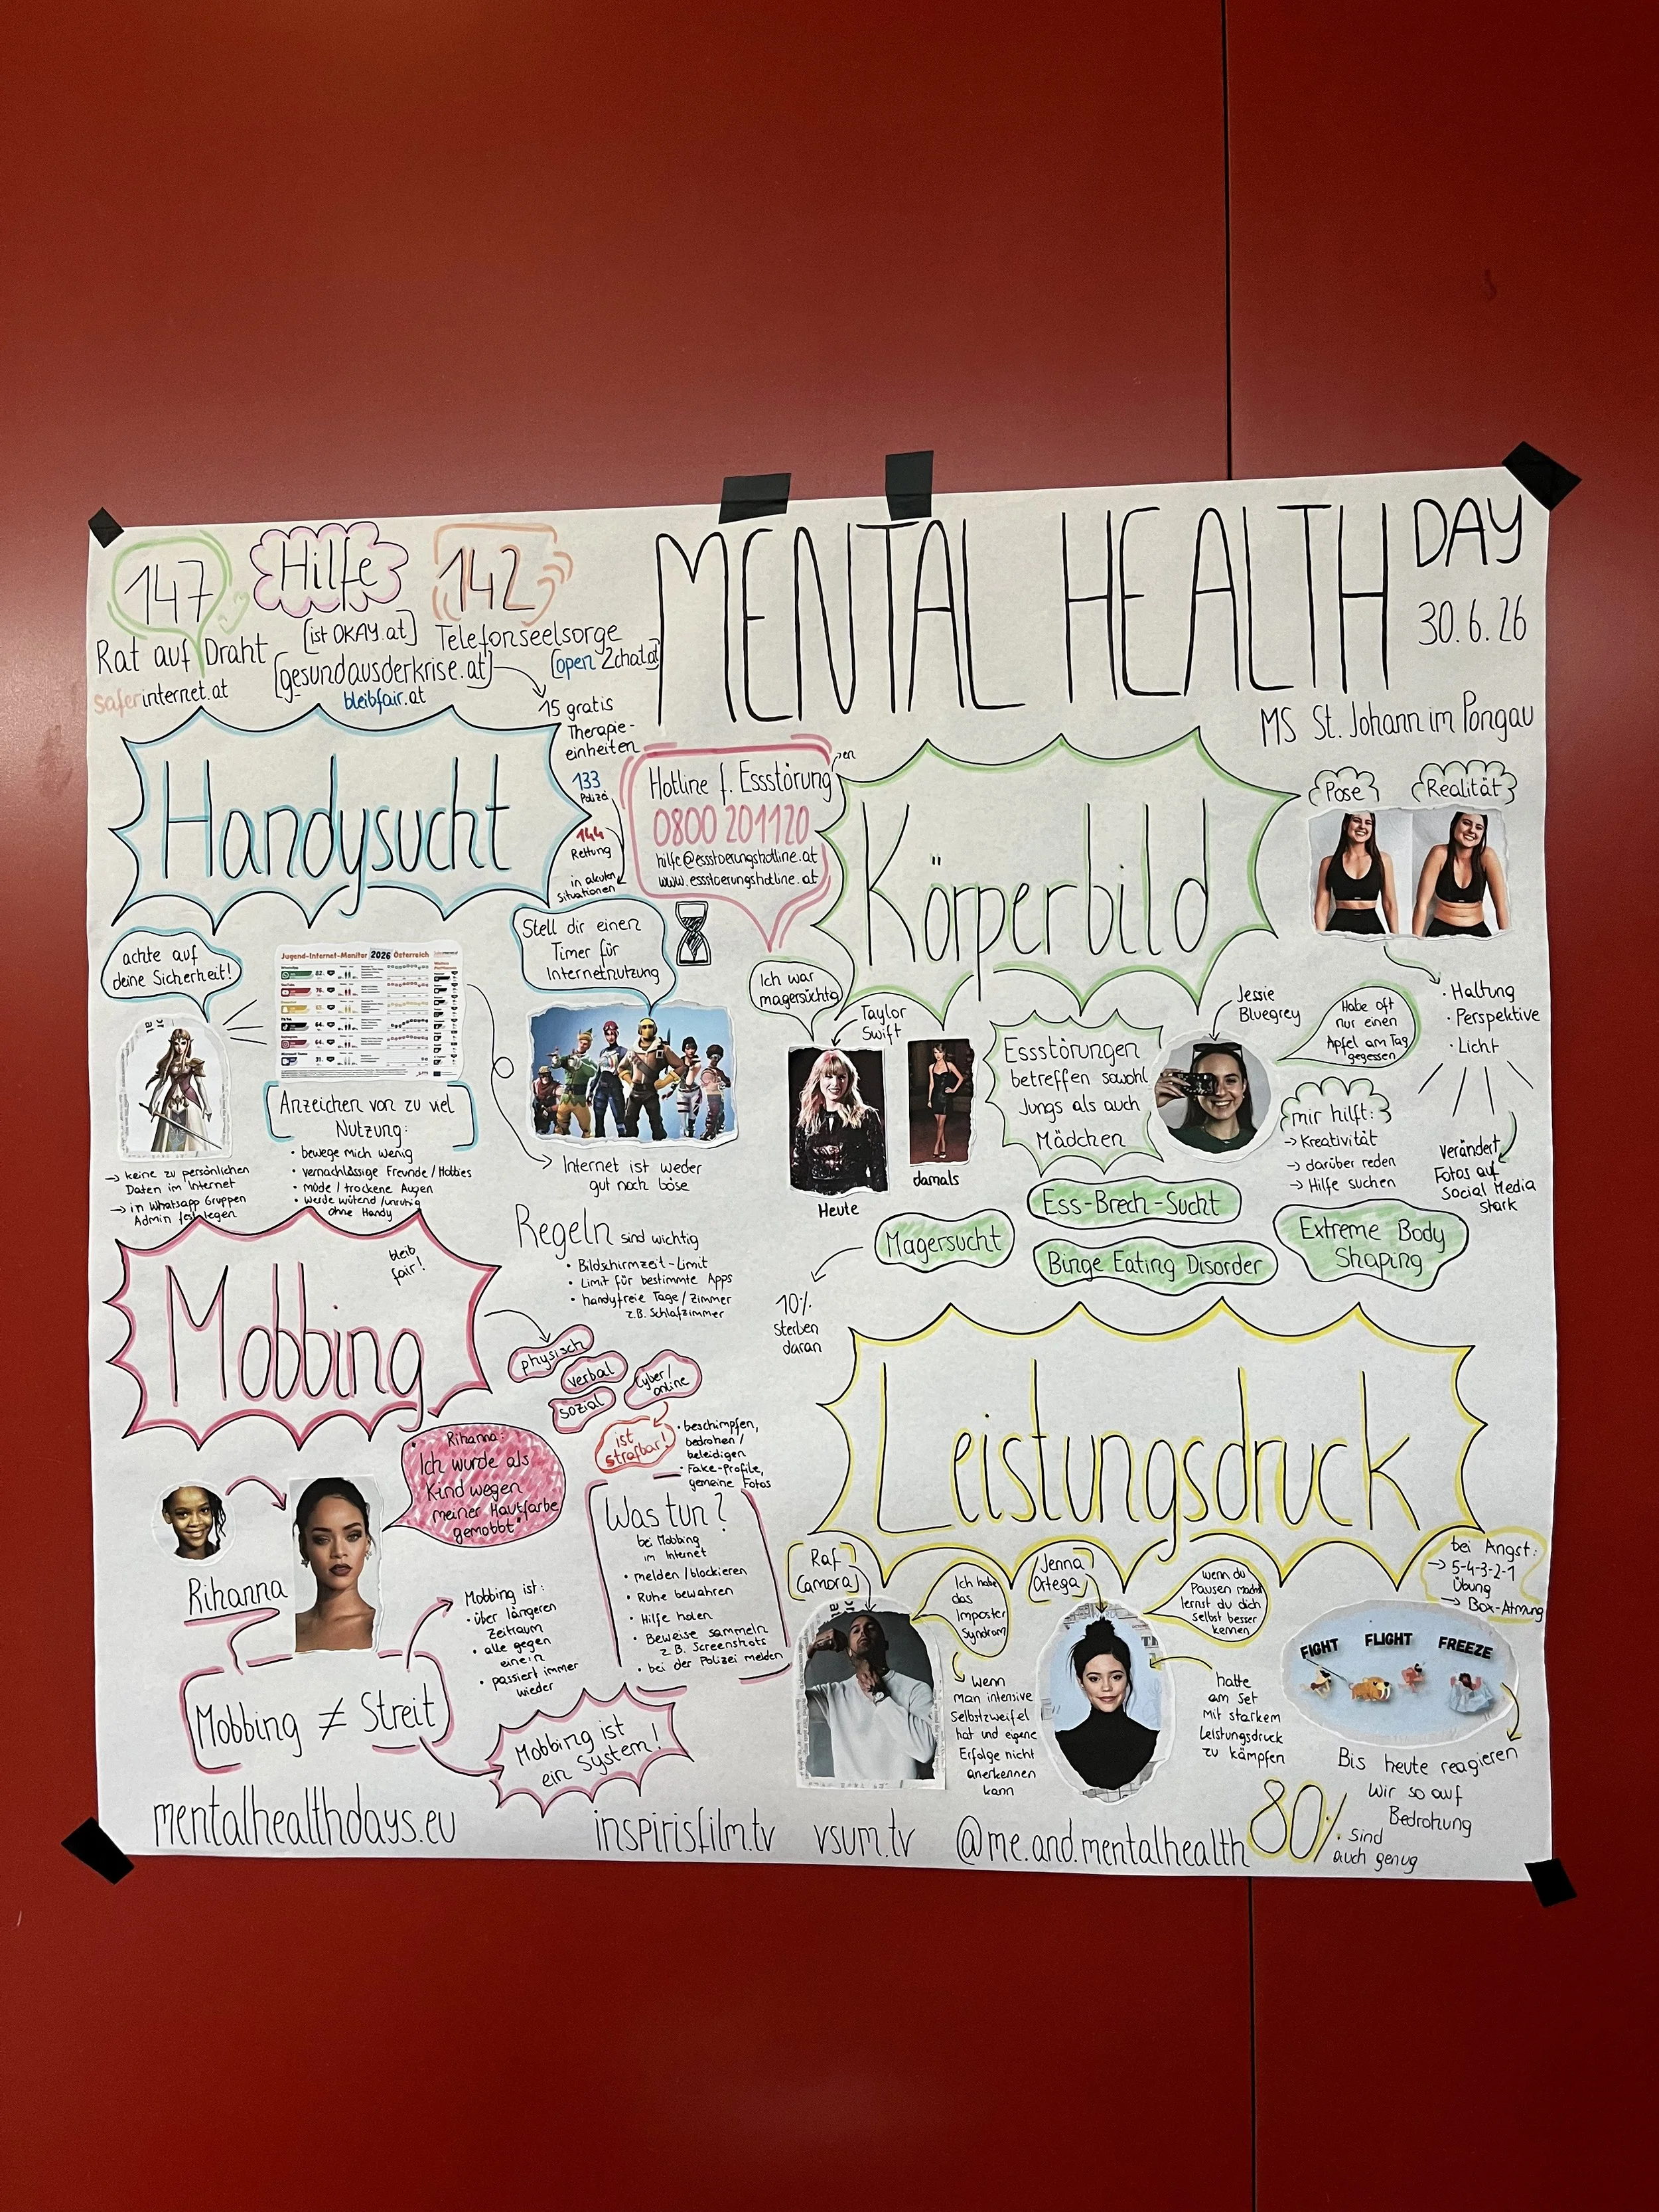 MENTAL HEALTH DAY
30.6.26
MS St. Johann im Pongau
147
Rat auf Draht
saferinternet.at
Hilfe
[ist OKAY.at]
[gesundausderkrise.at]
bleibfair.at
142
Telefonseelsorge
[open2chat.at]
15 gratis
Therapie-
einheiten
133
Polizei
144
Rettung
in akuten
Situationen
Handysucht
achte auf
deine Sicherheit!
→ keine zu persönlichen
Daten im Internet
→ in Whatsapp Gruppen
Admin festlegen
Jugend-Internet-Monitor 2026 Österreich
Anzeichen von zu viel
Nutzung:
• bewege mich wenig
• vernachlässige Freunde/Hobbies
• müde / trockene Augen
• werde wütend/unruhig
ohne Handy
Stell dir einen
Timer für
Internetnutzung
Internet ist weder
gut noch böse
Regeln sind wichtig
• Bildschirmzeit-Limit
• Limit für bestimmte Apps
• handyfreie Tage/Zimmer
z.B. Schlafzimmer
Hotline f. Essstörungen
0800 201120
hilfe@essstoerungshotline.at
www.essstoerungshotline.at
Körperbild
Pose
Realität
• Haltung
• Perspektive
• Licht
verändert
Fotos auf
Social Media
stark
Ich war
magersüchtig
Taylor
Swift
Heute
damals
Essstörungen
betreffen sowohl
Jungs als auch
Mädchen
Jessie
Bluegrey
Habe oft
nur einen
Apfel am Tag
gegessen
mir hilft:
→ Kreativität
→ darüber reden
→ Hilfe suchen
Magersucht
10%
sterben
daran
Ess-Brech-Sucht
Binge Eating Disorder
Extreme Body
Shaping
Mobbing
bleib
fair!
physisch
verbal
sozial
Cyber/
online
ist
strafbar!
• beschimpfen,
bedrohen/
beleidigen
• Fake-Profile,
gemeine Fotos
Rihanna:
"Ich wurde als
Kind wegen
meiner Hautfarbe
gemobbt"
Rihanna
Mobbing ≠ Streit
Mobbing ist:
• über längeren
Zeitraum
• alle gegen
einen
• passiert immer
wieder
Mobbing ist
ein System!
Was tun?
bei Mobbing
im Internet
• melden/blockieren
• Ruhe bewahren
• Hilfe holen
• Beweise sammeln
z.B. Screenshots
• bei der Polizei melden
Leistungsdruck
Raf
Camora
Ich habe
das
Imposter
Syndrom
Wenn
man intensive
Selbstzweifel
hat und eigene
Erfolge nicht
anerkennen
kann
Jenna
Ortega
wenn du
Pausen machst
lernst du dich
selbst besser
kennen
hatte
am Set
mit starkem
Leistungsdruck
zu kämpfen
bei Angst:
→ 5-4-3-2-1
Übung
→ Box-Atmung
FIGHT FLIGHT FREEZE
Bis heute reagieren
wir so auf
Bedrohung
80%
sind
auch genug
mentalhealthdays.eu
inspirisfilm.tv
vsum.tv
@me.and.mentalhealth